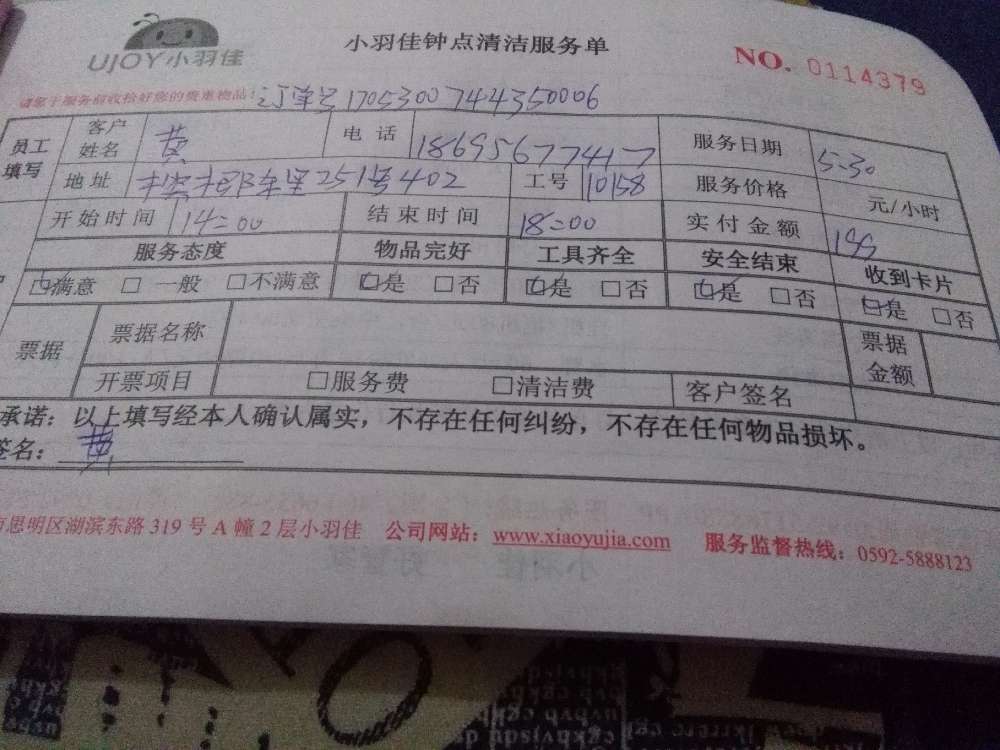 UJOY小羽佳
小羽佳钟点清洁服务单
NO. 0114379
请您于服务前收拾好您的贵重物品! 订单号1705300744350006
员工填写 客户姓名 黄 电话 18695677417 服务日期 5-30
地址 251号402 工号 10158 服务价格 元/小时
开始时间 14:00 结束时间 18:00 实付金额
服务态度 物品完好 工具齐全 安全结束 收到卡片
满意 一般 不满意 是 否 是 否 是 否 是 否
票据 票据名称 票据金额
开票项目 服务费 清洁费 客户签名
承诺:以上填写经本人确认属实,不存在任何纠纷,不存在任何物品损坏。
签名: 黄
思明区湖滨东路 319 号 A 幢 2 层小羽佳 公司网站:www.xiaoyujia.com 服务监督热线:0592-5888123